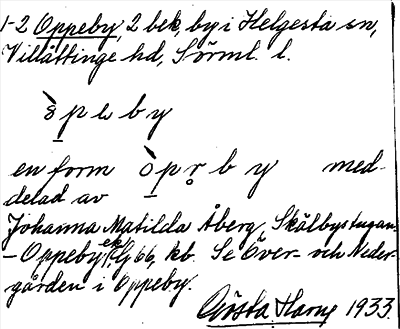 1-2 Oppeby, 2 bek, by i Helgesta sn,
Villåttinge hd, Sörml. l.
ò̱peby
en form ò̱pr̥by med-
delad av
Johanna Matilda Åberg, Skälbystugan
- Oppeby 66, kb. Se Över- och Neder-
gården i Oppeby.
Gösta Harne 1933.